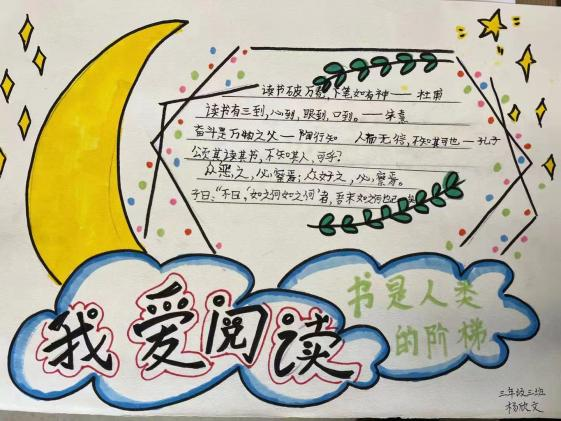 读书破万卷，下笔如有神——杜甫
读书有三到，心到，眼到，口到。——朱熹
奋斗是万物之父——陶行知 人而无信，不知其可也——孔子
颂其诗读其书，不知其人，可乎？
众恶之，必察焉；众好之，必察焉。
子曰：“不曰‘如之何如之何’者，吾末如之何也已
我爱阅读
书是人类
的阶梯
三年级三班
杨欣文